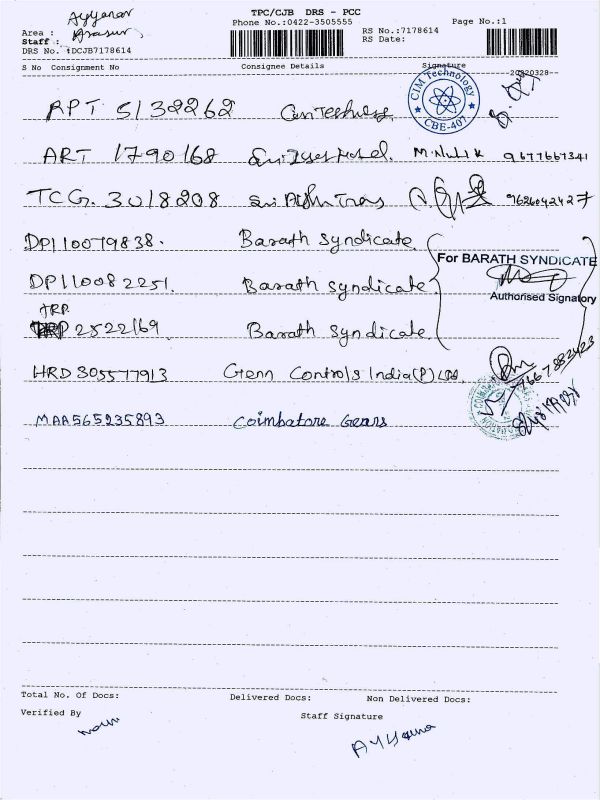 TPC/CJB DRS - PCC
Ayyanar
Phone No.:0422-3505555
Page No.:1
Area : Arasur
RS No.:7178614
Staff :
RS Date:
DRS No. :DCJB7178614
S No Consignment No Consignee Details Signature
-20220328-
APT 5132262
CIM Technology
CBE-407
ART 1790168 Sri Hotel. M. 9677667341
TCG. 3018208 Sri Trans 9626042427
DP110079838. Barath Syndicate
DP110082251. Barath Syndicate
For BARATH SYNDICATE
Authorised Signatory
TRP 2522169 Barath Syndicate
HRD 305577913 Genn Controls India (P) Ltd.
7667382423
MAA565235893 Coimbatore Gears
Total No. Of Docs: Delivered Docs: Non Delivered Docs:
Verified By
Staff Signature